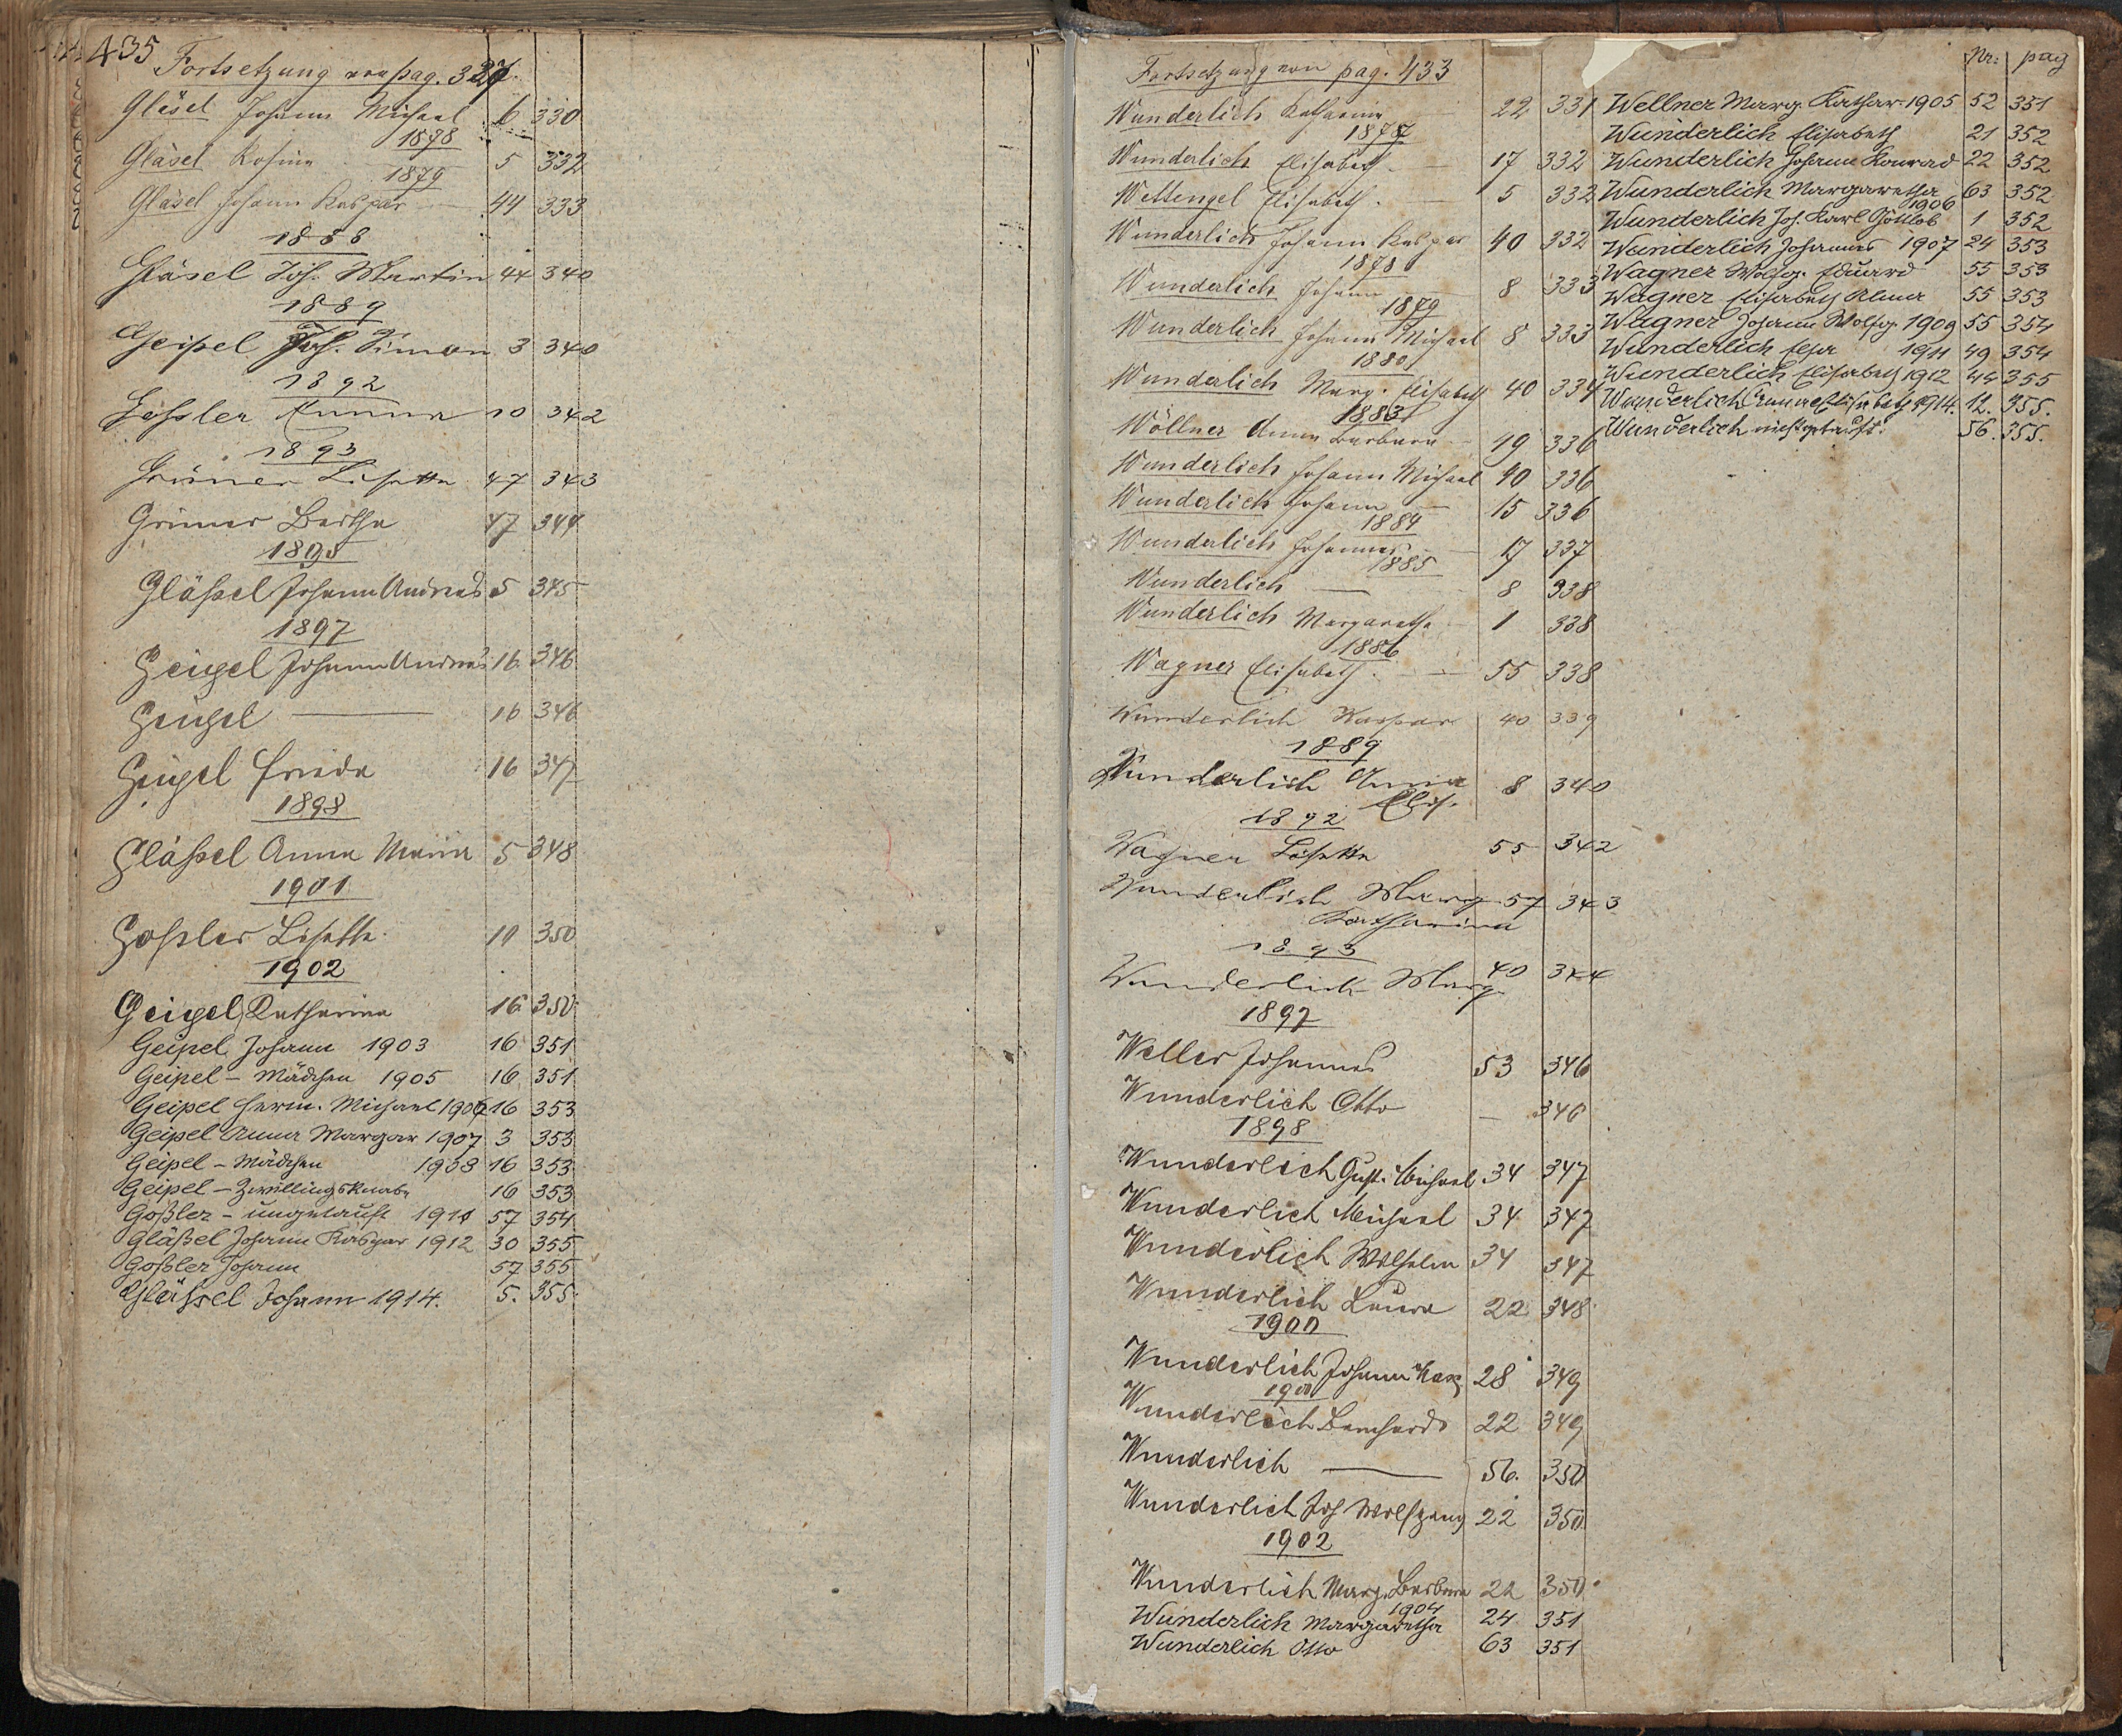 435
Fortsetzung von pag. 327
Gläsel Johann Michael 6 330
1878
Gläsel Rosina 5 332
1879
Gläsel Johann Kaspar — 44 333
1888
Gläsel Joh. Martin 44 340
1889
Geipel Joh. Simon 3 340
1892
Goßler Anna 10 342
1893
Grüner Lisetta 47 343
Grüner Bertha 47 344
1895
Gläßel Johann Andreas 5 345
1897
Geigel Johann Andreas 16 346
Geigel — 16 346
Geigel Frieda 16 347
1898
Gläßel Anna Maria 5 348
1901
Goßler Lisetta 10 350
1902
Geigel, Katharina 16 350
Geipel Johann 1903 16 351
Geipel – Mädchen 1905 16 351
Geipel Herm. Michael 1906 16 353
Geipel Anna Margar 1907 3 353
Geipel – Mädchen 1908 16 353
Geipel – Zwillingsknabe 16 353
Goßler – ungetauft 1911 57 354
Gläßel Johann Kaspar 1912 30 355
Goßler Johann 57 355
Gläßel Johann 1914. 5. 355.
Fortsetzung von pag. 433
Wunderlich Katharina 22 331
1877
Wunderlich Elisabeth. — 17 332
Wettengel Elisabeth. — 5 332
Wunderlich Johann Kaspar 40 332
1878
Wunderlich Johann 8 333
1879
Wunderlich Johann Michael 8 333
1880
Wunderlich Marg. Elisabeth 40 334
1883
Wöllner Anna Barbara — 49 336
Wunderlich Johann Michael 40 336
Wunderlich Johann — 15 336
1884
Wunderlich Johannes — 17 337
1885
Wunderlich — 8 338
Wunderlich Margaretha 1 338
1886
Wagner Elisabeth. — 55 338
Wunderlich Kaspar 40 339
1889
Wunderlich Anna 8 340
Elis.
1892
Wagner Lisetta 55 342
Wunderlich Marg 57 343
Katharina
1893
Wunderlich Marg 40 344
1897
Weller Johannes 53 346
Wunderlich Otto — 346
1898
Wunderlich Gust. Michael 34 347
Wunderlich Michael 34 347
Wunderlich Wilhelm 34 347
Wunderlich Laura 22 348
1900
Wunderlich Johann Kasp 28 349
1900
Wunderlich Bernhard 22 349
Wunderlich — 56. 350
Wunderlich Joh Wolfgang 22 350
1902
Wunderlich Marg. Barbara 22 350
1904
Wunderlich Margaretha 24 351
Wunderlich Otto 63 351
Nr: pag
Wellner Marg. Kathar. 1905 52 351
Wunderlich Elisabeth 21 352
Wunderlich Johann Konrad 22 352
Wunderlich Margaretha 63 352
1906
Wunderlich Joh. Karl Gottlob 1 352
Wunderlich Johannes 1907 24 353
Wagner Wolfg. Eduard 55 353
Wagner Elisabeth Alma 55 353
Wagner Johann Wolfg. 1909 55 354
Wunderlich Elsa 1911 49 354
Wunderlich Elisabeth 1912 44 355
Wunderlich Anna Elisabeth 1914. 12. 355.
Wunderlich nicht getauft. 56. 355.